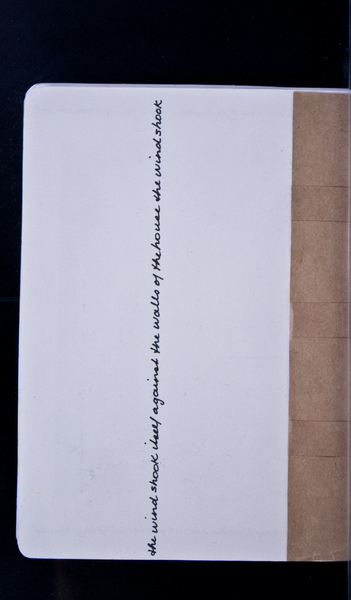 the wind shook itself against the walls of the house the wind shook